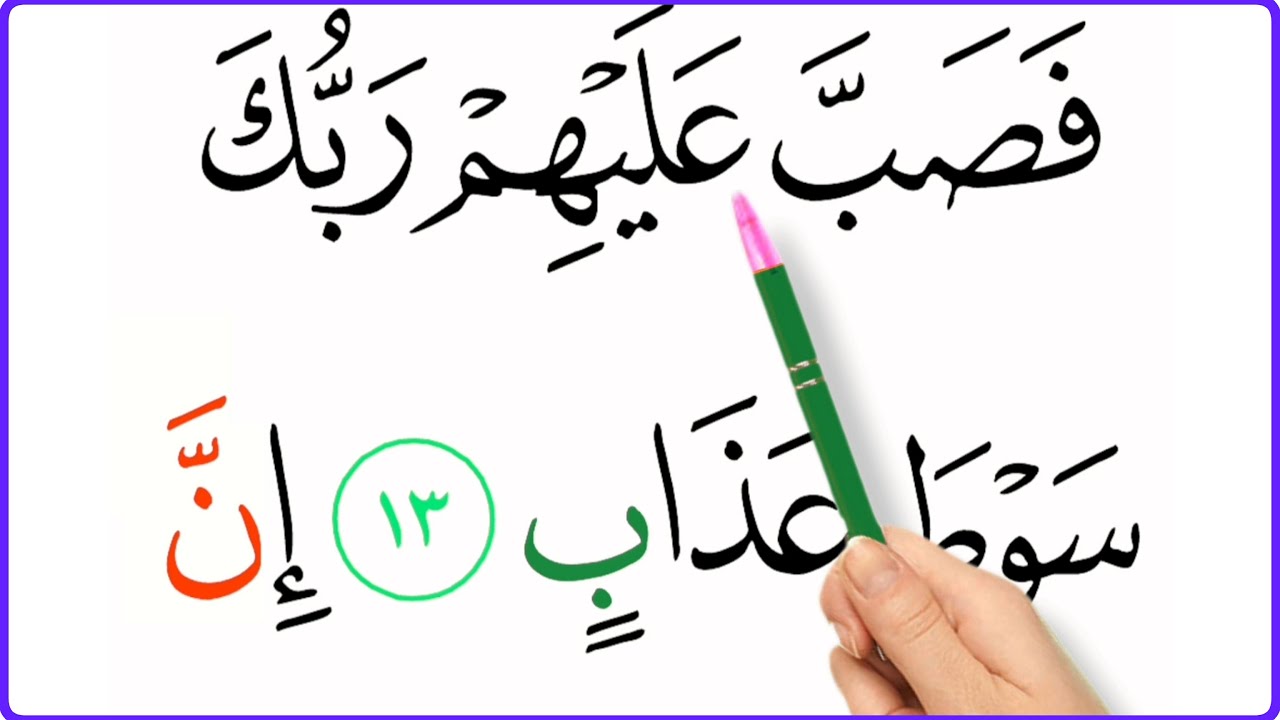 فَصَبَّ عَلَيْهِمْ رَبُّكَ
سَوْطَ عَذَابٍ ١٣ إِنَّ